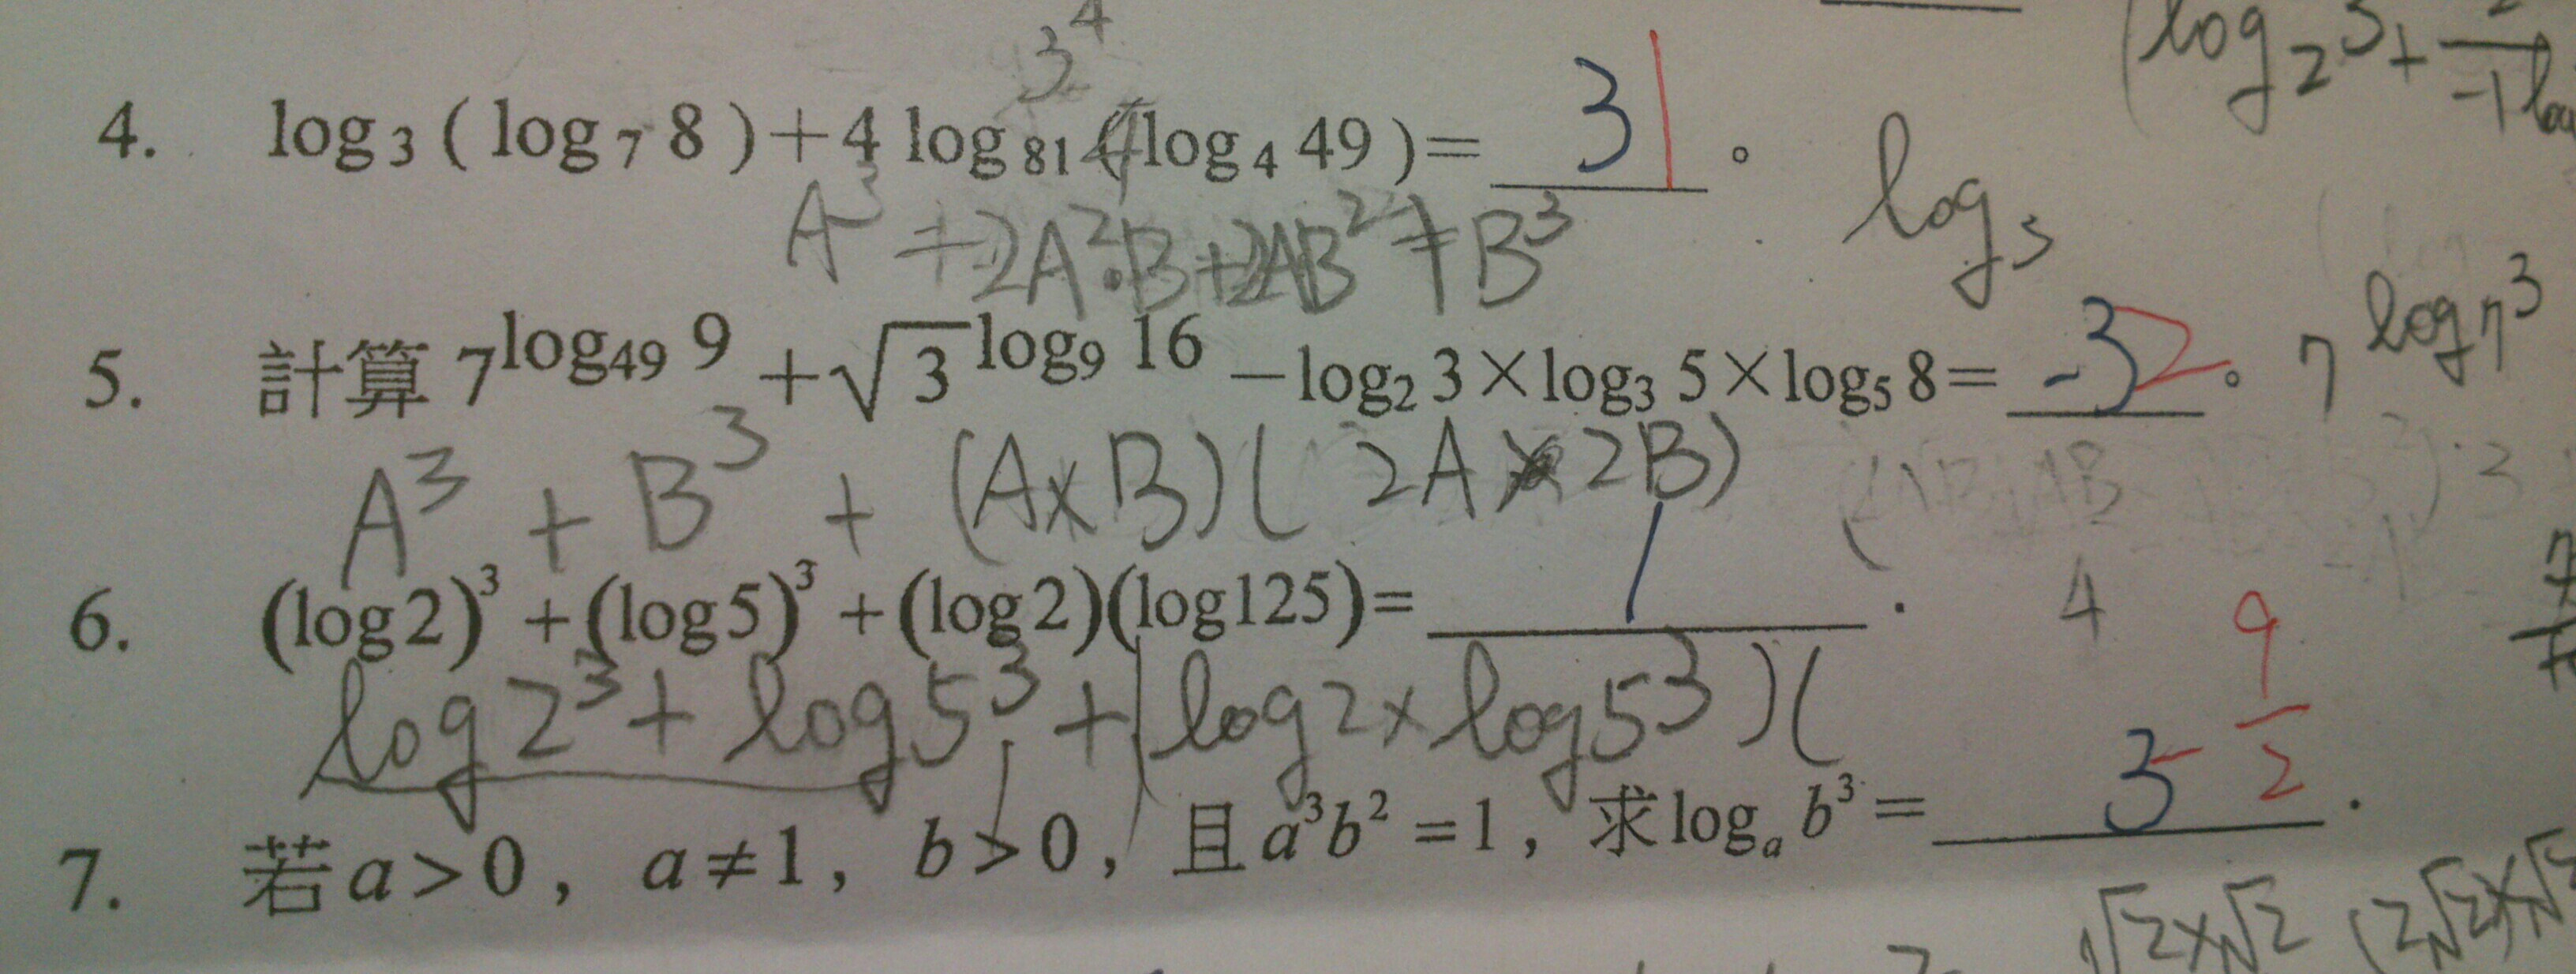 3⁴
(log₂3+
4. log₃ ( log₇ 8 )+4 log₈₁ (log₄ 49 )= 3 1 。
log₃
A³ + 2A²·B+2AB² + B³
5. 計算 7^(log₄₉ 9) +√3^(log₉ 16) −log₂ 3×log₃ 5×log₅ 8= -3 2 。 7^(log₇3)
A³ + B³ + (A×B)( 2A × 2B)
4
6. (log2)³ +(log5)³ +(log2)(log125)= 1 .
log2³ + log5³ + (log2×log5³)(
7. 若a>0, a≠1, b>0, 且a³b² =1, 求logₐ b³ = 3 -9/2 .
√2×√2 (2√2×√2